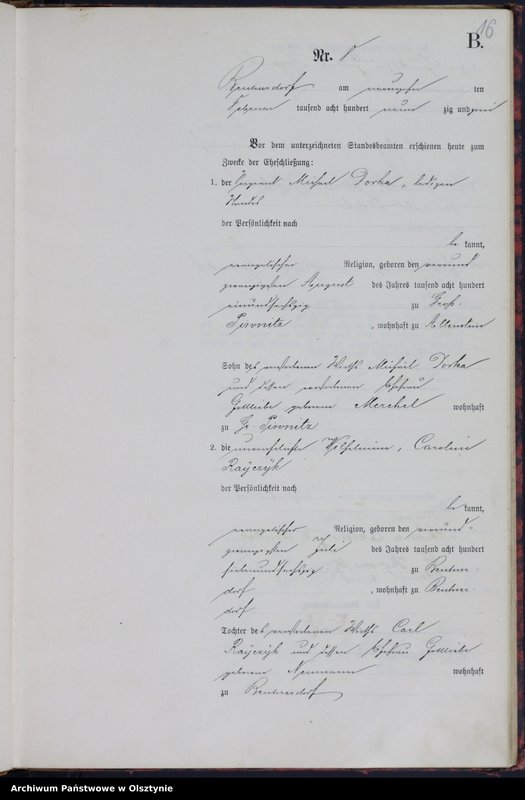 16
B.
Nr. 8.
Rentienen am
ten
Februar tausend acht hundert neun zig und zwei
Vor dem unterzeichneten Standesbeamten erschienen heute zum
Zwecke der Eheschließung:
1. der Sergeant Michael Dorka, ledigen
Standes
der Persönlichkeit nach
be kannt,
evangelischer Religion, geboren den einund-
zwanzigsten August des Jahres tausend acht hundert
einundsechszig zu Groß-
Piwnitz, wohnhaft zu Allenstein
Sohn des verstorbenen Wirths Michael Dorka
und dessen verstorbenen Ehefrau
Gottliebe geborene Merchel wohnhaft
zu Gr. Piwnitz
2. die unverehelichte Wilhelmine, Caroline
Rayczyk
der Persönlichkeit nach
be kannt,
evangelischer Religion, geboren den einund-
zwanzigsten Juli des Jahres tausend acht hundert
siebenundsechszig zu
dorf, wohnhaft zu
dorf
Tochter des verstorbenen Wirths Carl
Rayczyk und dessen Ehefrau Gottliebe
geborene Neumann wohnhaft
zu
Archiwum Państwowe w Olsztynie